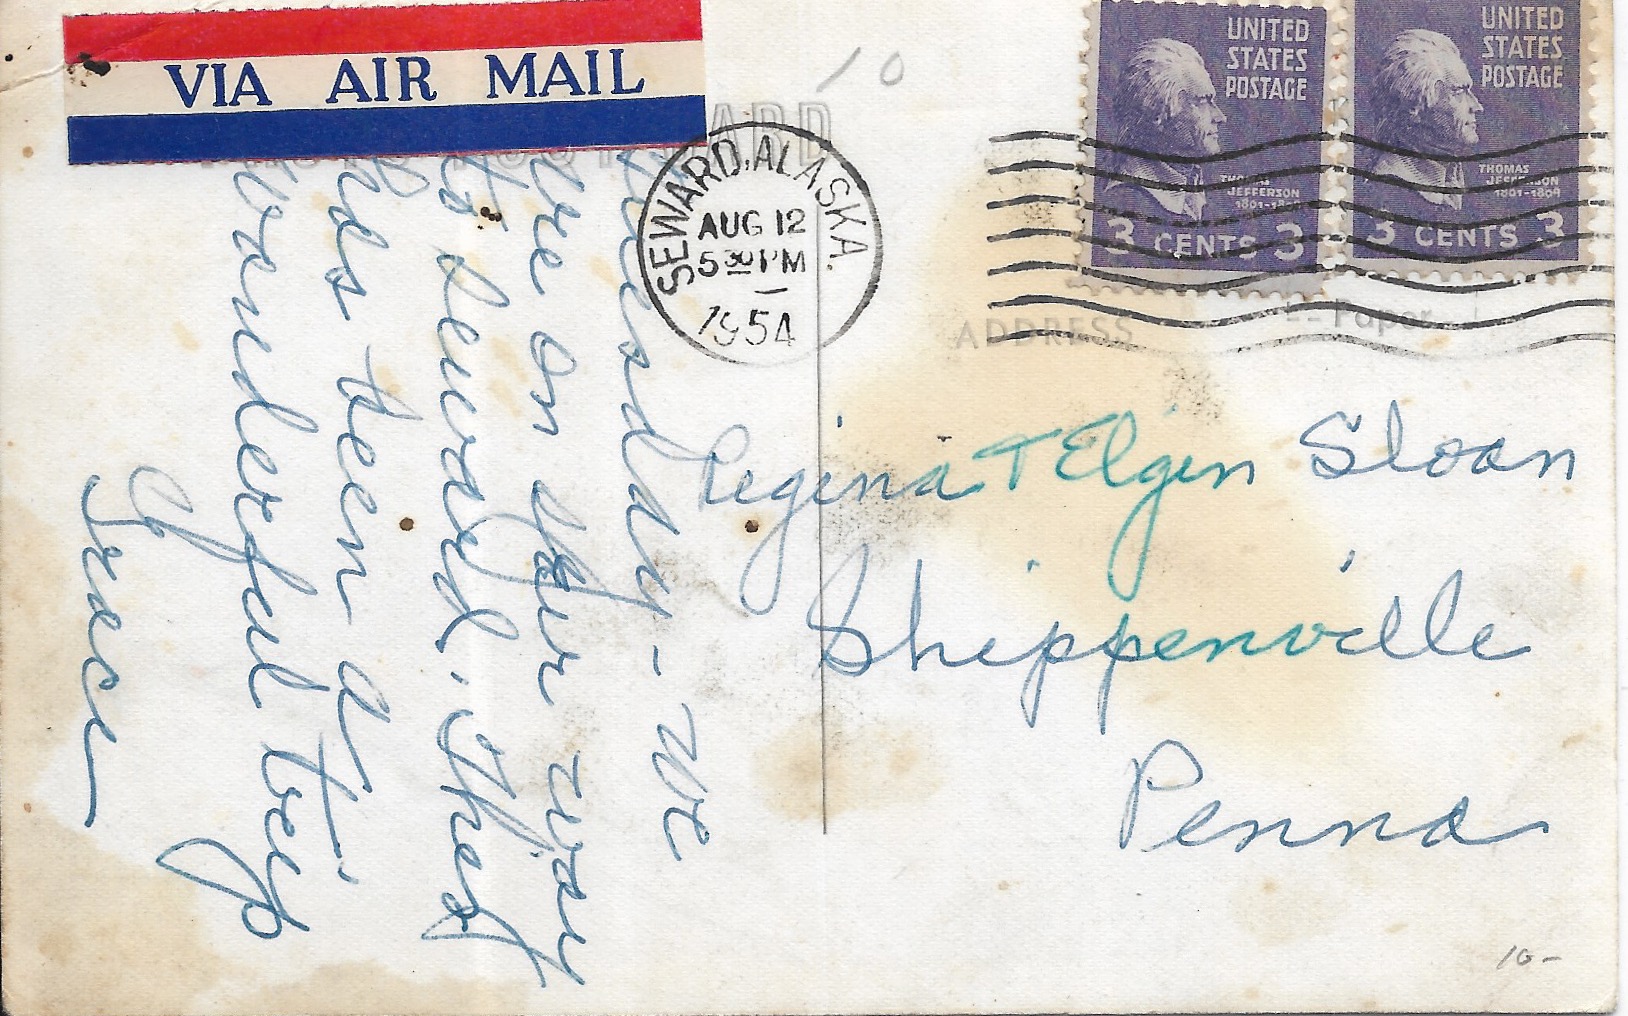 VIA AIR MAIL
CARD
10
SEWARD, ALASKA.
AUG 12
5 30 PM
1954
UNITED
STATES
POSTAGE
THOMAS
JEFFERSON
1801-1809
3 CENTS 3
UNITED
STATES
POSTAGE
THOMAS
JEFFERSON
1801-1809
3 CENTS 3
ADDRESS
Paper
Regina + Elgin Sloan
Shippenville
Penna
- we
are on our way
to Seward. This
has been a
wonderful trip
Grace
10-